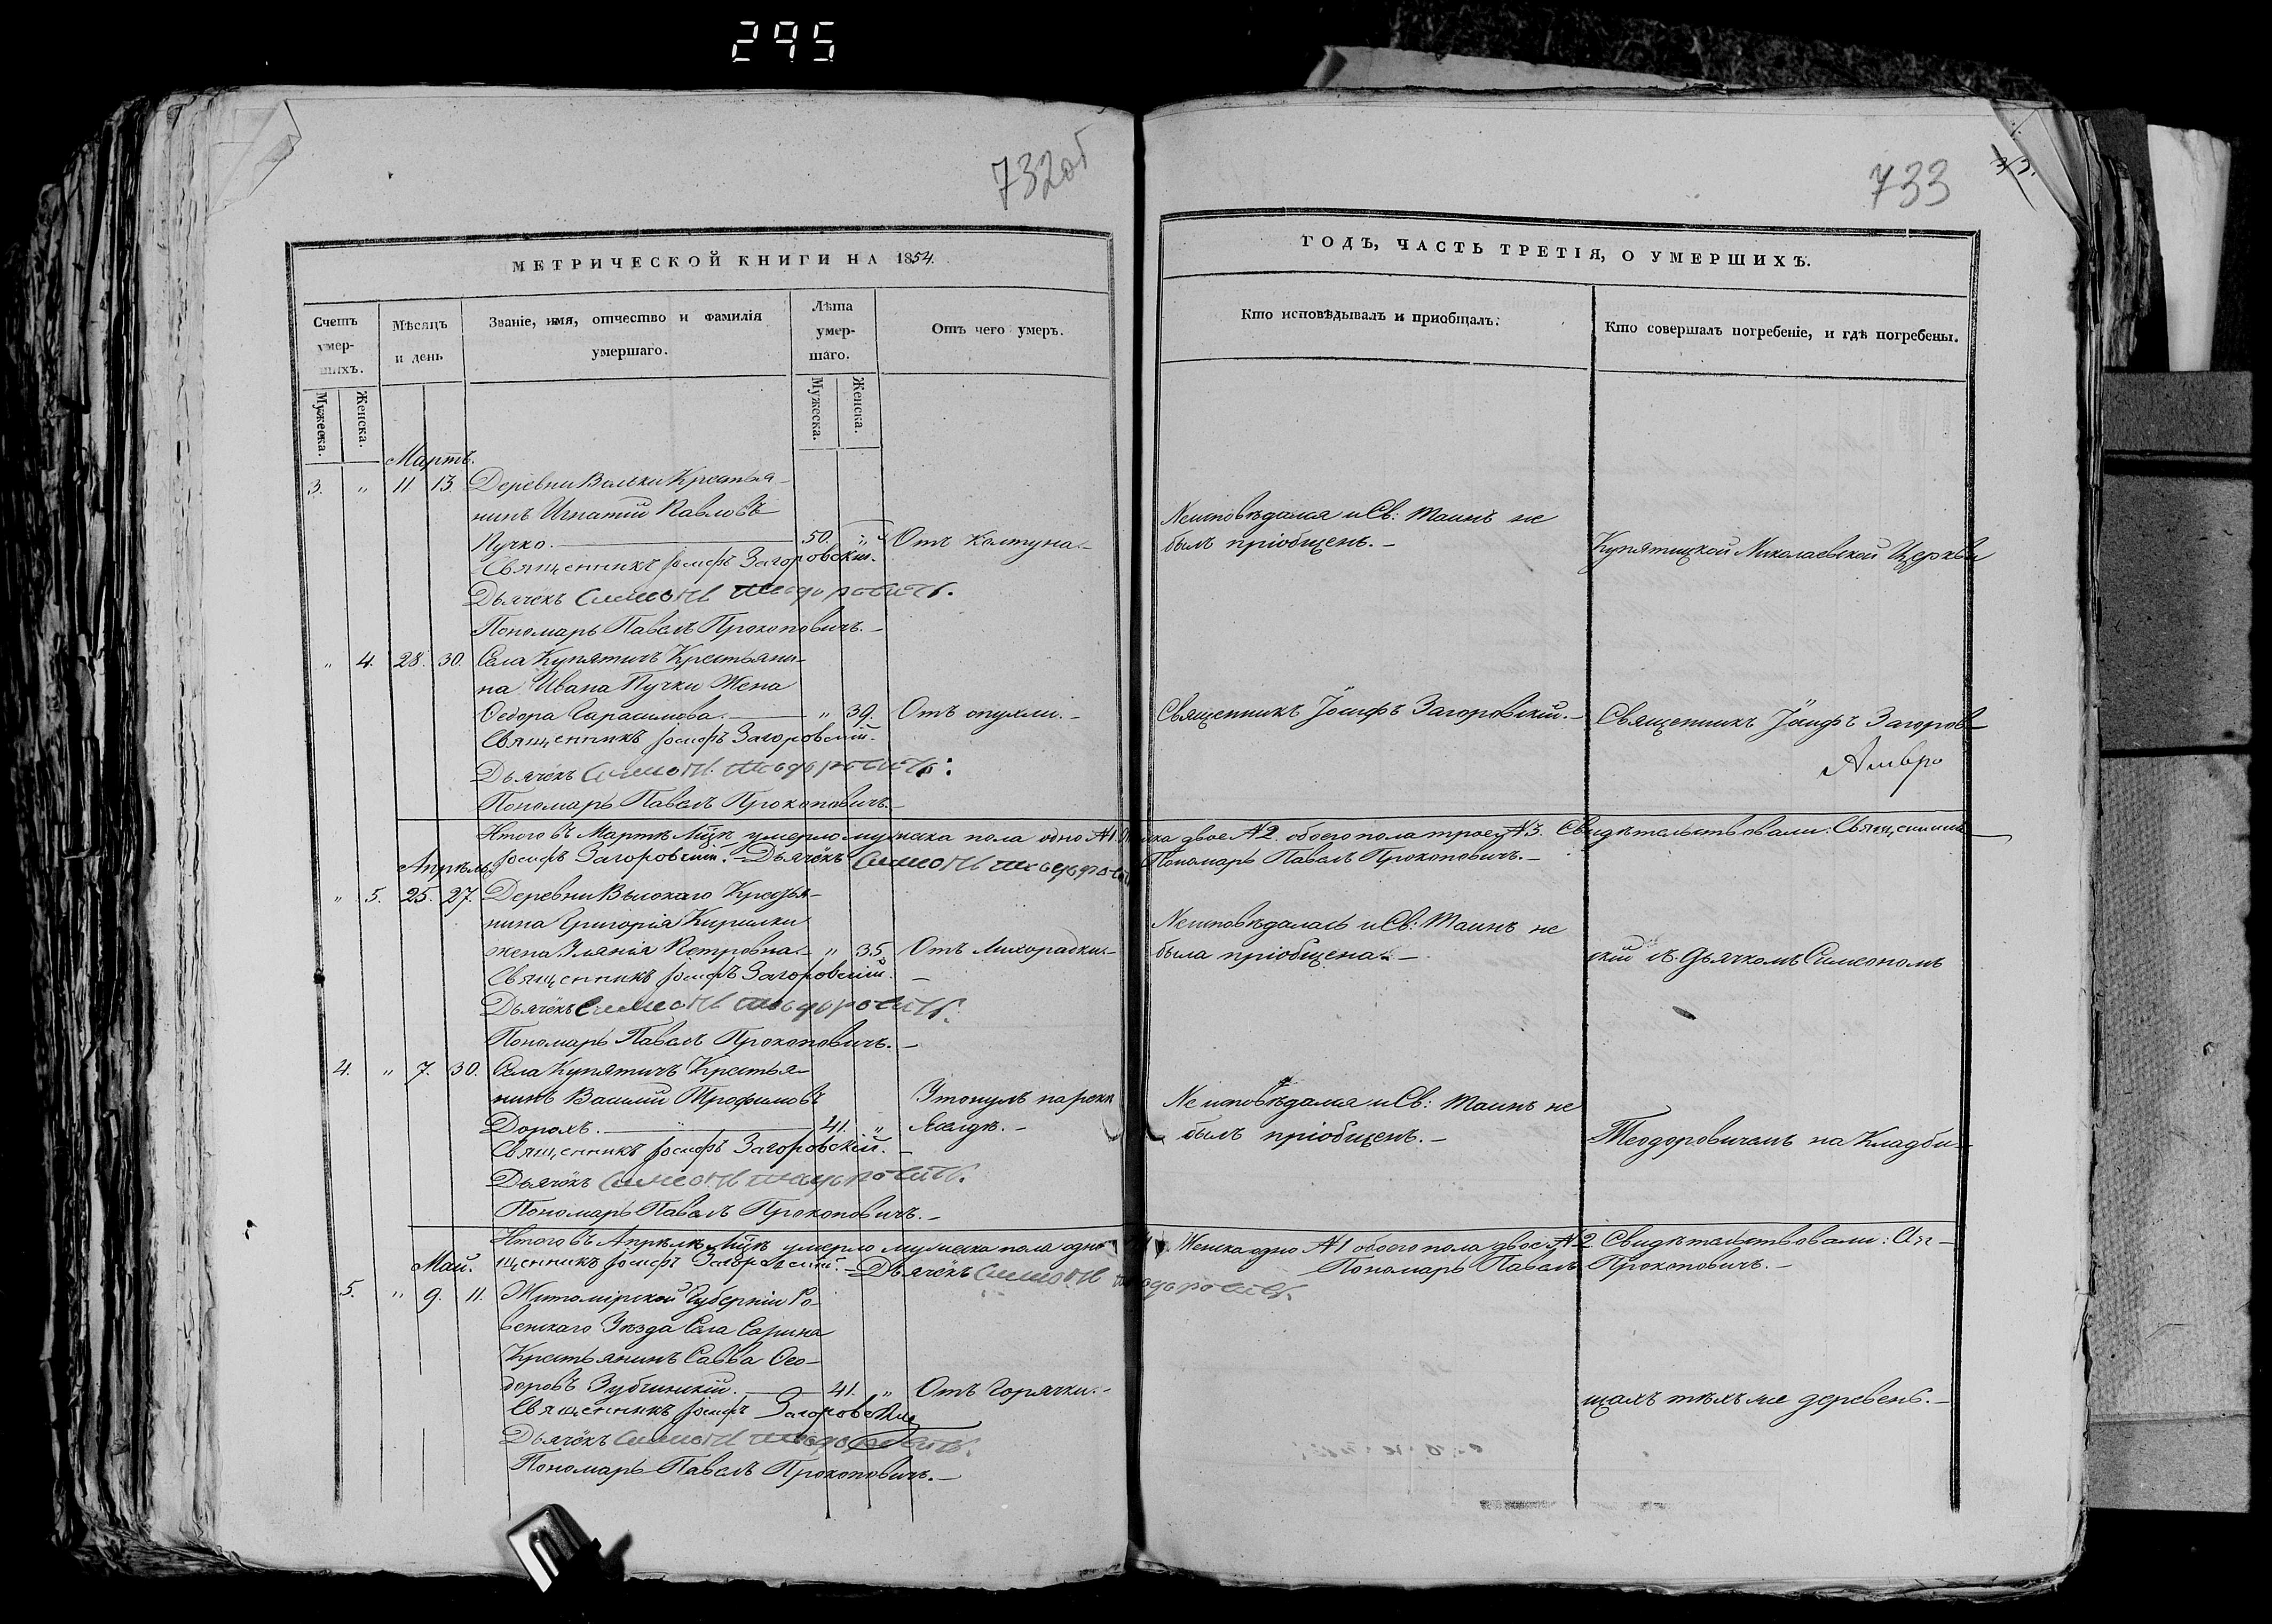 295
732об
733
МЕТРИЧЕСКОЙ КНИГИ НА 1854.
Счетъ умер-шихъ.
Мѣсяцъ и день
Званіе, имя, отчество и фамилія умершаго.
Лѣта умер-шаго.
Отъ чего умеръ.
Мужеска.
Женска.
Мужеска.
Женска.
Мартъ.
3. " 11 13. Деревни Крестья-
нинъ Игнатій Павловъ
Пучко. 50. " Отъ колтуна.-
Священникъ Іосифъ Загоровскій.
Дьячекъ Симеонъ Теодоровичъ.
Пономарь Павелъ Прокоповичъ.-
" 4. 28. 30. Села Купятичъ Крестьяни-
на Ивана Пучки Жена
Ѳедора Гарасимова. " 39. Отъ опухли.-
Священникъ Іосифъ Загоровскій.
Дьячёкъ Симеонъ Теодоровичъ.
Пономарь Павелъ Прокоповичъ.-
Итого въ Мартѣ Мцѣ умерло мужеска пола одно №1
Іосифъ Загоровскій.- Дьячёкъ Симеонъ Теодоровичъ
Апрѣль.
" 5. 25. 27. Деревни Высокаго Крестья-
нина Григорія Кирилки
жена Уліянія Петровна.- " 35. Отъ Лихорадки.-
Священникъ Іосифъ Загоровскій.-
Дьячёкъ Симеонъ Теодоровичъ.
Пономарь Павелъ Прокоповичъ.-
4. " 7. 30. Села Купятичъ Крестья-
нинъ Василій Трофимовъ
Дорохъ. 41. " Утонулъ на реки
Ясалдѣ.-
Священникъ Іосифъ Загоровскій.-
Дьячёкъ Симеонъ Теодоровичъ.
Пономарь Павелъ Прокоповичъ.-
Итого въ Апрѣлѣ Мцѣ умерло мужеска пола одно
щенникъ Іосифъ Загоровскій.- Дьячёкъ Симеонъ Теодоровичъ.
Май.
5. " 9. 11. Житомірской Губерніи Ро-
венскаго Уѣзда Села
Крестьянинъ Савва Ѳео-
доровъ Зубчинскій. 41. " Отъ Горячки.-
Священникъ Іосифъ Загоровскій
Дьячёкъ Симеонъ Теодоровичъ.
Пономарь Павелъ Прокоповичъ.-
ГОДЪ, ЧАСТЬ ТРЕТІЯ, О УМЕРШИХЪ.
Кто исповѣдывалъ и приобщалъ.
Кто совершалъ погребеніе, и гдѣ погребены.
Неисповѣдался и Св: Таинъ не
былъ пріобщенъ.-
Купятицкой Николаевской Церкви
Священникъ Іосифъ Загоровскій.-
Священникъ Іосифъ Загоров-
двое №2. обоего пола трое №3. Свидѣтельствовали: Священникъ
Пономарь Павелъ Прокоповичъ.-
Неисповѣдалась и Св: Таинъ не
была пріобщена.-
скій съ Дьячкомъ Симеономъ
Неисповѣдался и Св: Таинъ не
былъ пріобщенъ.-
Теодоровичемъ на Кладби-
Женска одно №1 обоего пола двое №2 Свидѣтельствовали: Свя-
Пономарь Павелъ Прокоповичъ.-
щахъ тѣхъ же деревень.-